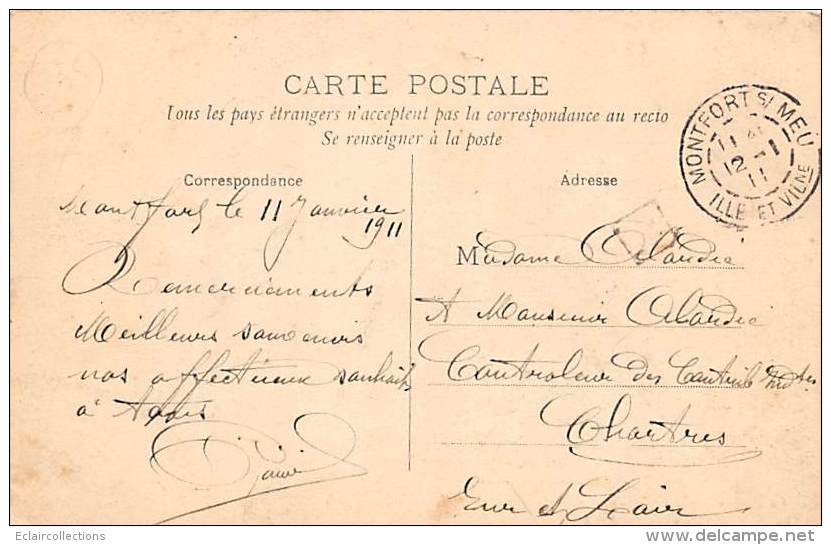 CARTE POSTALE
Tous les pays étrangers n'acceptent pas la correspondance au recto
Se renseigner à la poste
Correspondance
Adresse
MONTFORT S/ MEU
12 - 1
11
ILLE ET VILNE
Montfort le 11 Janvier
1911
Remerciements
Meilleurs souvenirs
nos affectueux souhaits
à tous
Madame
A Monsieur
Controleur des Contrib Indtes
Chartres
Eure et Loir
Eclaircollections
delcampe.net